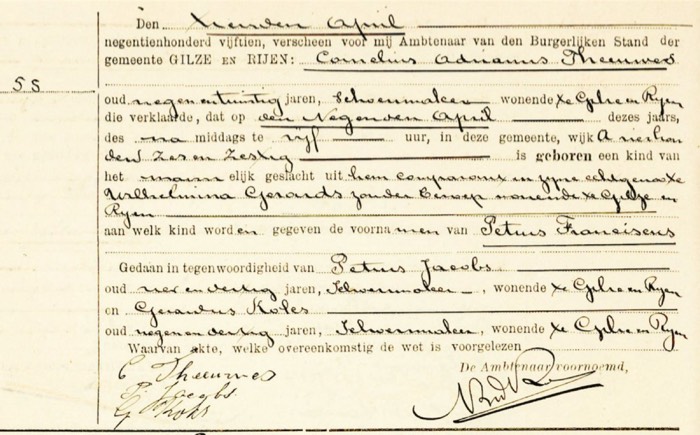 Den tienden April
negentienhonderd vijftien, verscheen voor mij Ambtenaar van den Burgerlijken Stand der
gemeente GILZE EN RIJEN: Cornelius Adrianus Theeuwes
55
oud negenentwintig jaren, Schoenmaker wonende te Gilze en Rijen
die verklaarde, dat op den Negenden April dezes jaars,
des na middags te vijf uur, in deze gemeente, wijk A vierhon
derd zes en zestig is geboren een kind van
het mann elijk geslacht uit hem comparant en zijne echtgenoote
Wilhelmina Gerards zonder beroep wonende te Gilze en
Rijen
aan welk kind worden gegeven de voornamen van Petrus Franciscus
Gedaan in tegenwoordigheid van Petrus Jacobs
oud vier en dertig jaren, Schoenmaker, wonende te Gilze en Rijen
en Gerardus Koks
oud negen en dertig jaren, Schoenmaker, wonende te Gilze en Rijen
Waarvan akte, welke overeenkomstig de wet is voorgelezen
De Ambtenaar voornoemd,
C Theeuwes
P. Jacobs
G Koks